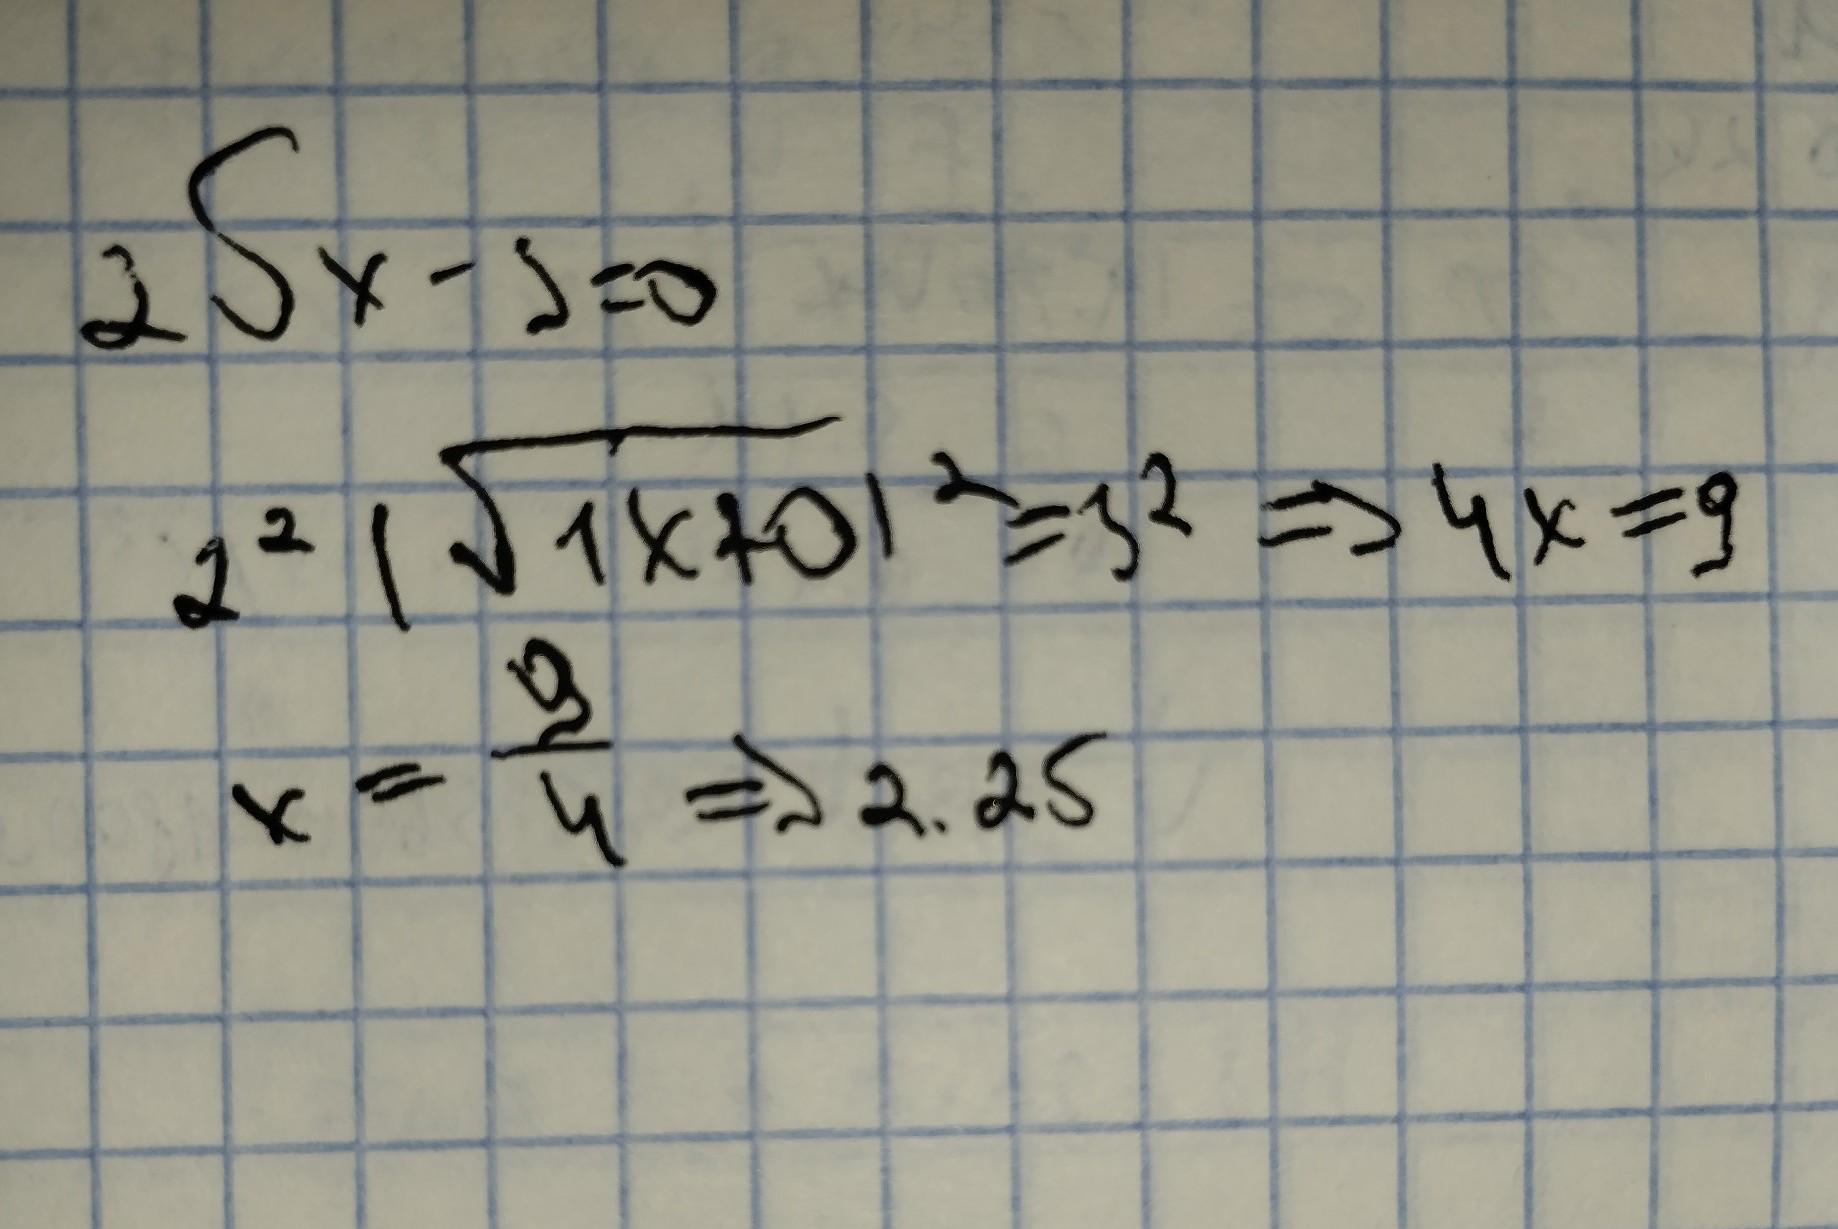 2∫x - 3=0
2² |√1x+0|² =3² ⇒ 4x=9
x = 9/4 ⇒ 2.25